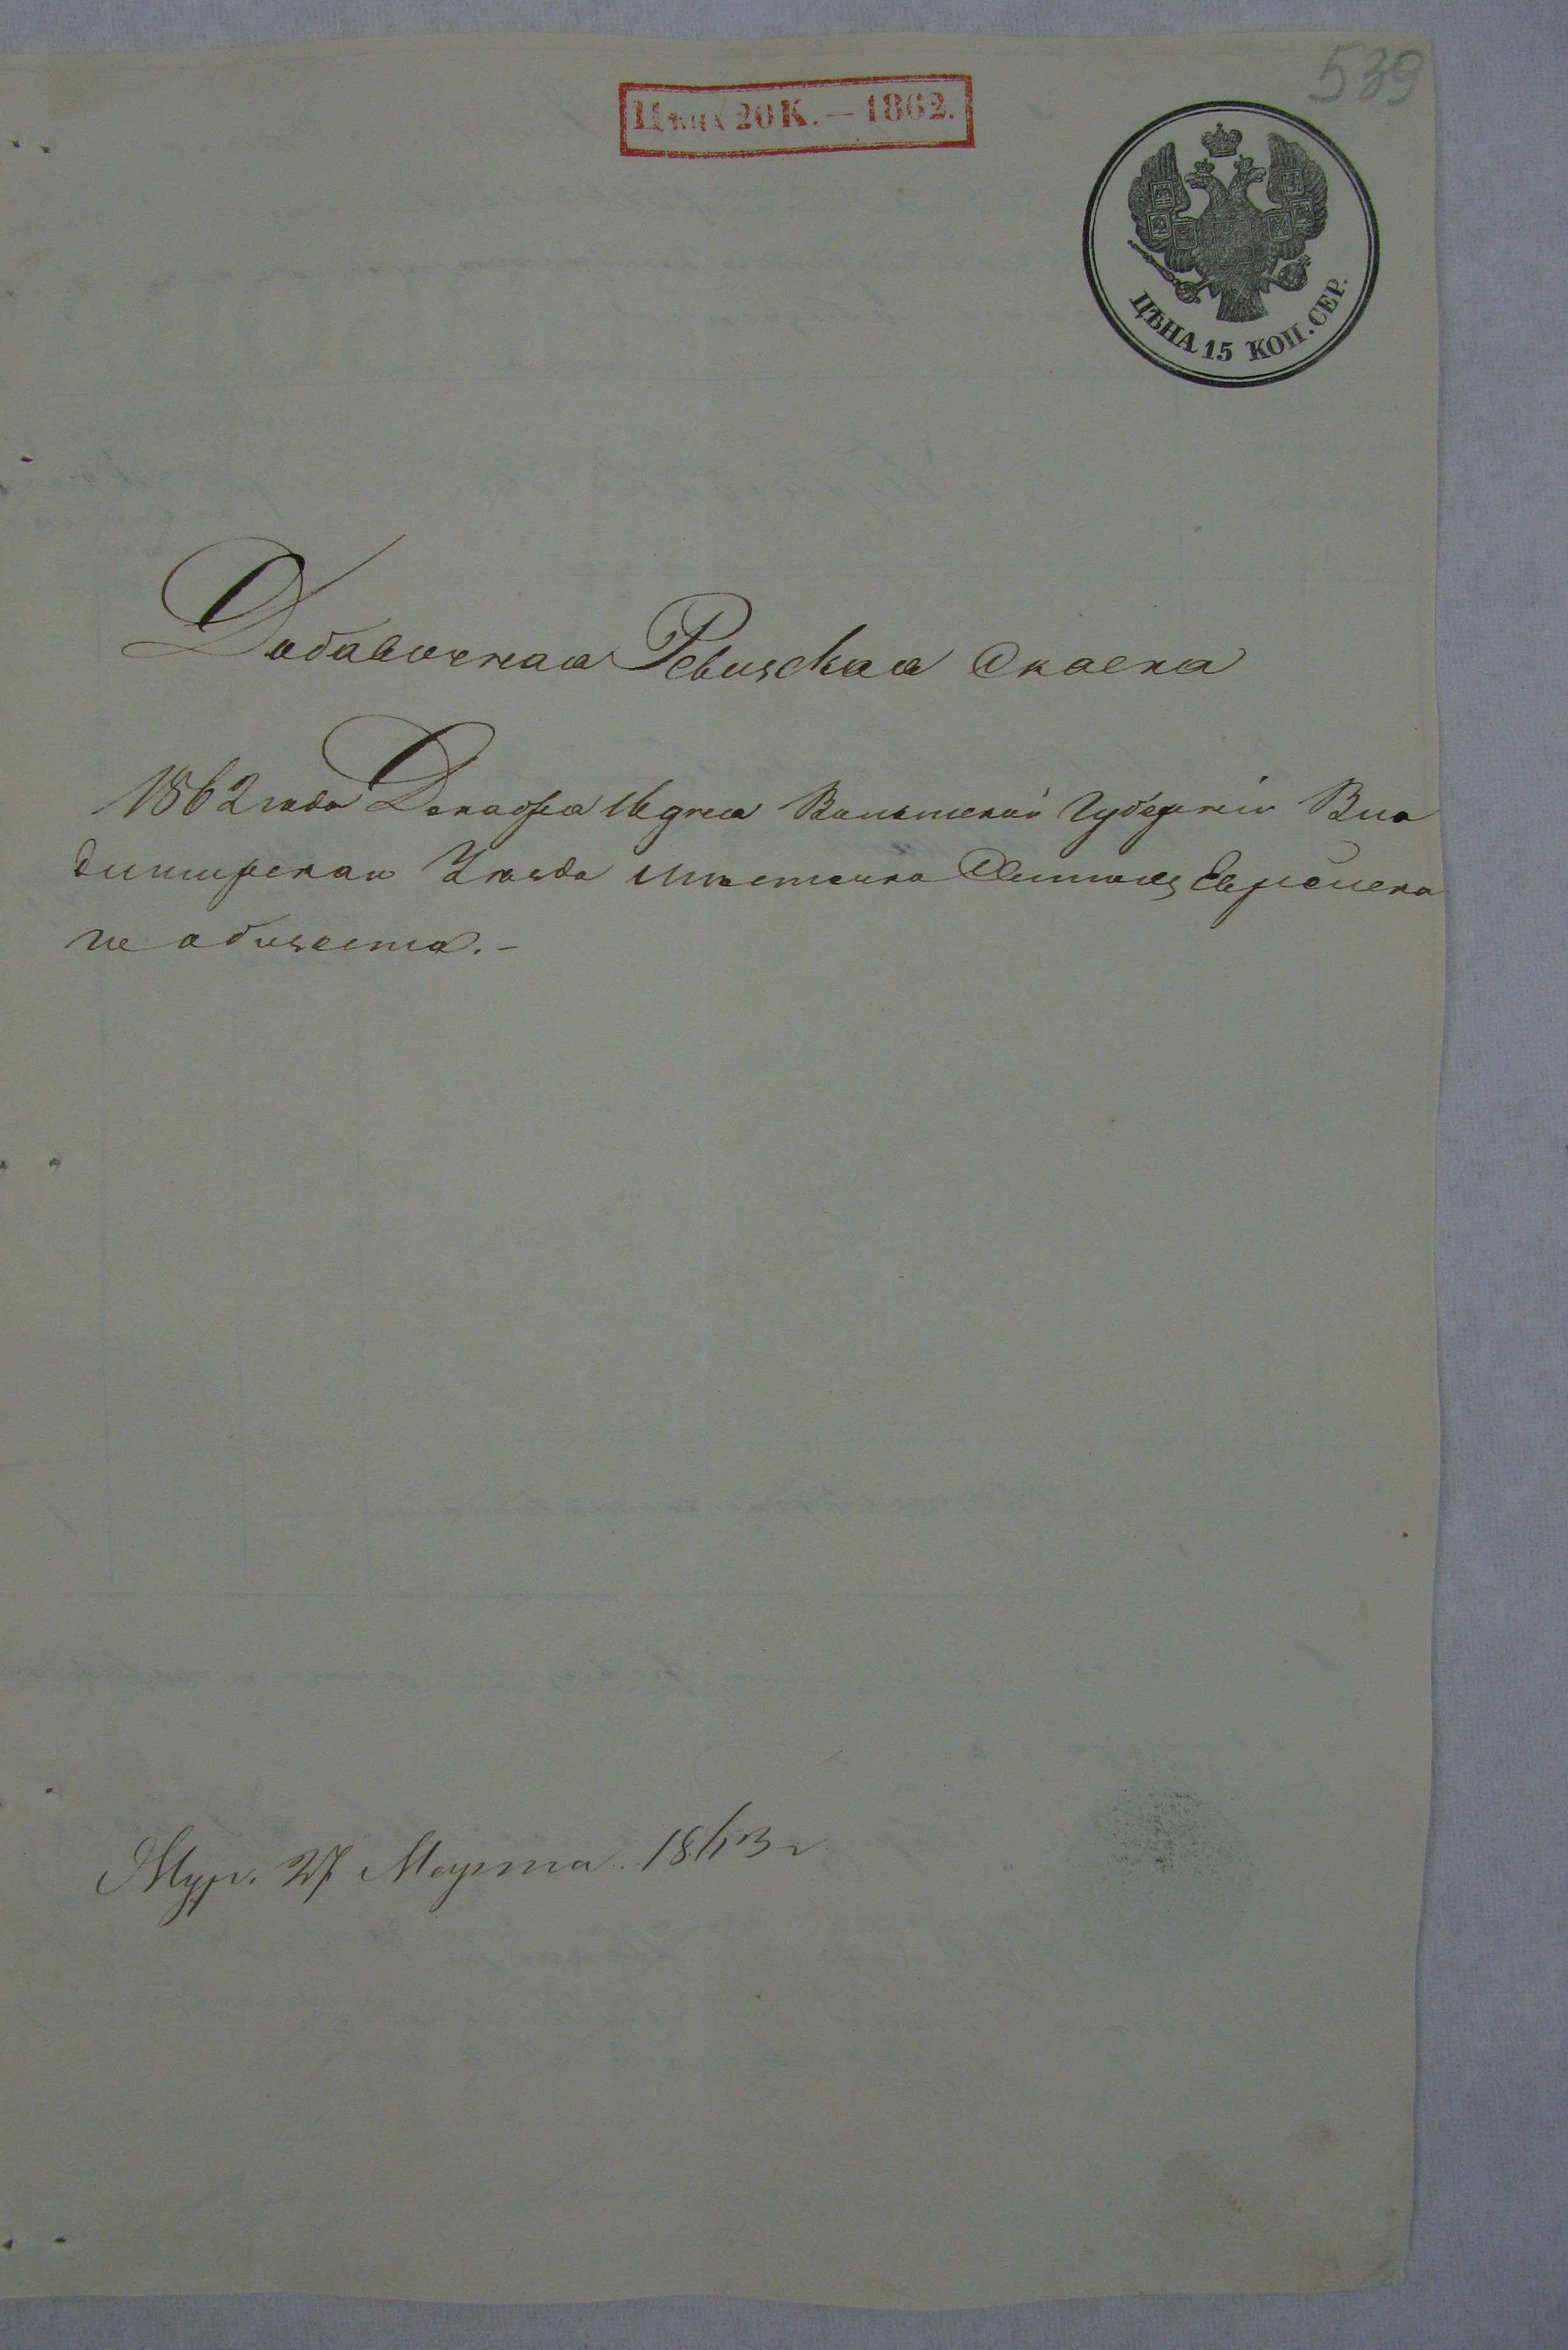 539
Цѣна 20 К. — 1862.
ЦѢНА 15 КОП. СЕР.
Добавочная Ревизская Скаска
1862 года Декабря 16 дня Волынской Губерніи Вла
димирскаго Уѣзда мѣстечка Еврейска
го общества. –
Жур. 27 Марта 1863 г